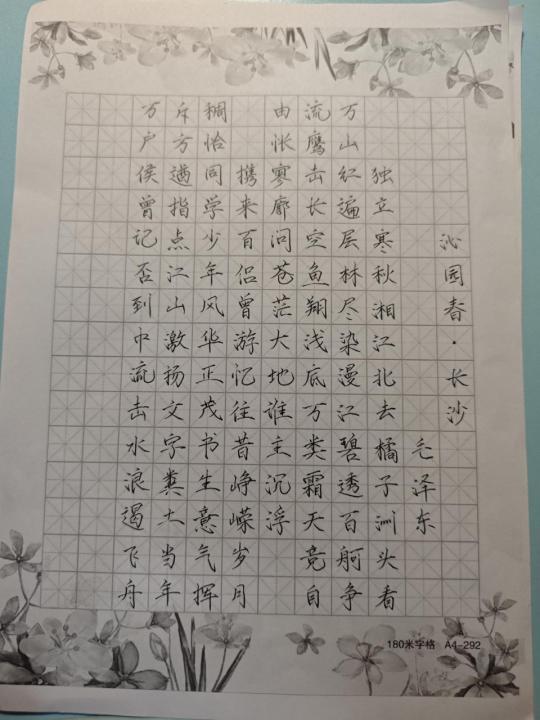 沁园春·长沙
毛泽东
独立寒秋湘江北去橘子洲头看
万山红遍层林尽染漫江碧透百舸争
流鹰击长空鱼翔浅底万类霜天竞自
由怅寥廓问苍茫大地谁主沉浮
携来百侣曾游忆往昔峥嵘岁月
稠恰同学少年风华正茂书生意气挥
斥方遒指点江山激扬文字粪土当年
万户侯曾记否到中流击水浪遏飞舟
180米字格 A4-292